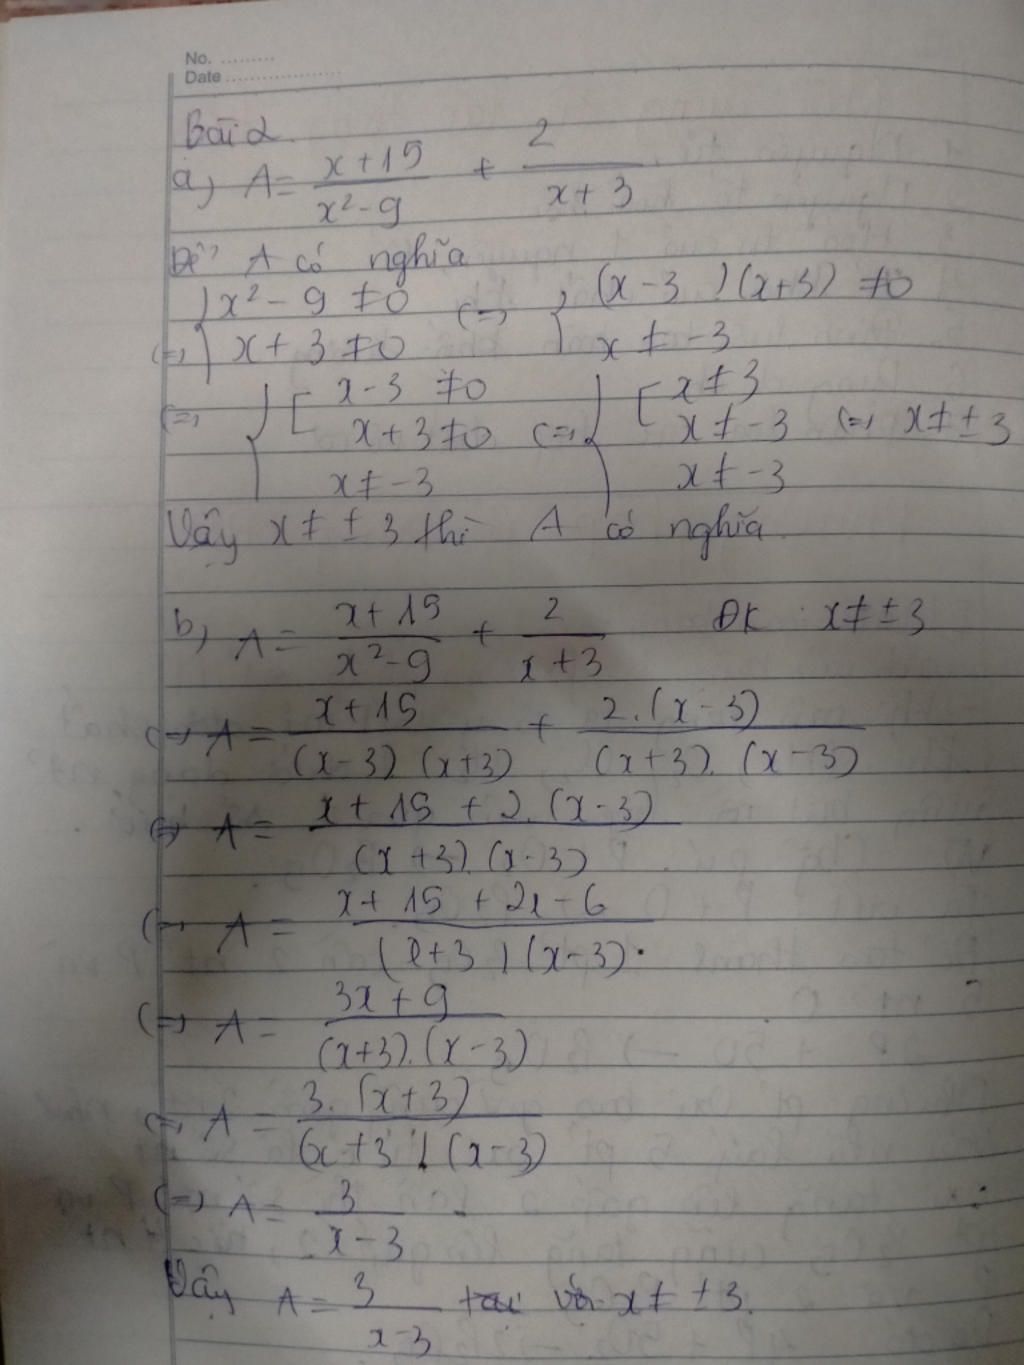 No. .........
Date ...................
Bài 2
a, A = (x+15)/(x²-9) + 2/(x+3)
Để A có nghĩa
(=) { x² - 9 ≠ 0 (=) { (x-3)(x+3) ≠ 0
x + 3 ≠ 0 x ≠ -3
(=) { [ x-3 ≠ 0 (=) { [ x ≠ 3
x+3 ≠ 0 x ≠ -3 (=) x ≠ ± 3
x ≠ -3 x ≠ -3
Vậy x ≠ ± 3 thì A có nghĩa
b, A = (x+15)/(x²-9) + 2/(x+3) ĐK : x ≠ ± 3
(=) A = (x+15)/((x-3)(x+3)) + (2.(x-3))/((x+3).(x-3))
(=) A = (x + 15 + 2.(x-3))/((x+3).(x-3))
(=) A = (x + 15 + 2x - 6)/((x+3)(x-3))
(=) A = (3x + 9)/((x+3).(x-3))
(=) A = (3.(x+3))/((x+3)(x-3))
(=) A = 3/(x-3)
Vậy A = 3/(x-3) với x ≠ ± 3.